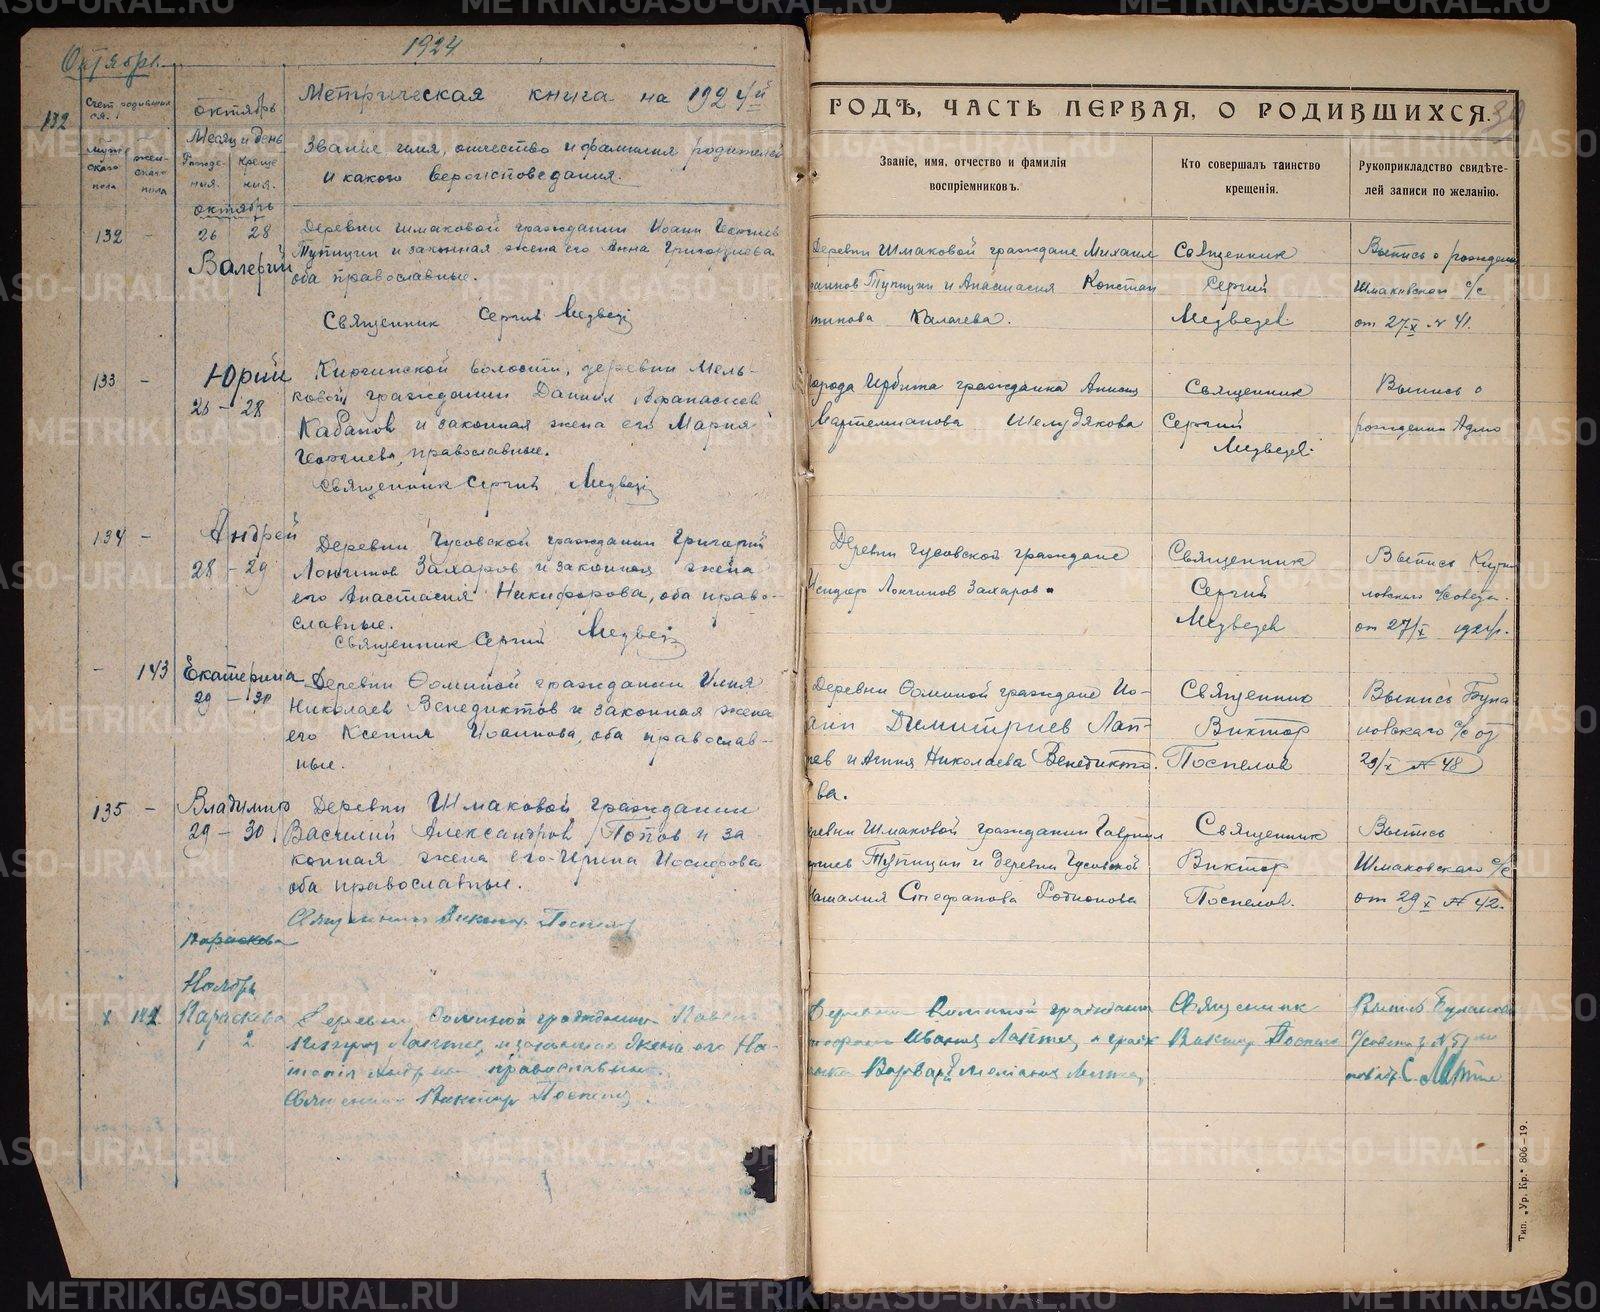 Октябрь. 1924
132
Счет родивших
ся.
Муж
скаго
пола
жен
скаго
пола
октябрь
Месяц и день
Рожде-
ния.
Креще
ния.
октябрь
Метрическая книга на 1924й
Звание имя, отчество и фамилия родителей
и какого вероисповедания.
132 - 26 28
Валерий
Деревни Шмаковой гражданин Иоанн
Тупицин и законная жена его Анна Григориева
оба православные.
Священник Сергий Медведев
133 - Юрий
26 - 28
Киргинской волости, деревни Мель-
ковой гражданин Даниил Афанасиев
Кабанов и законная жена его Мария
Георгиева, православные.
Священник Сергий Медведев
134 - Андрей
28 - 29
Деревни Чусовской гражданин Григорий
Лонгинов Захаров и законная жена
его Анастасия Никифорова, оба право-
славные.
Священник Сергий Медведев
- 143 Екатерина
29 - 30
Деревни Фоминой гражданин Илия
Николаев Венедиктов и законная жена
его Ксения Иоаннова, оба православ-
ные.
135 - Владимир
29 - 30
Деревни Шмаковой гражданин
Василий Александров Попов и за
конная жена его Ирина Иосифова
оба православные.
Священник Виктор Поспелов
Параскева
Ноябрь
Параскева
1 2
Деревни Фоминой гражданин
Лаптев и законная жена его На-
православные.
Священник Виктор Поспелов
ГОДЪ, ЧАСТЬ ПЕРВАЯ, О РОДИВШИХСЯ.
Званіе, имя, отчество и фамилія
воспріемниковъ.
Кто совершалъ таинство
крещенія.
Рукоприкладство свидѣте-
лей записи по желанію.
Деревни Шмаковой граждане Михаил
Тупицин и Анастасия Констан
тинова Калачева.
Священник
Сергий
Медведев
Выпись о рождении
Шмаковскаго с/с
от 27/X № 41.
города Ирбита гражданка
Шелудякова
Священник
Сергий
Медведев.
Выпись о
рождении
Деревни Чусовской граждане
Лонгинов Захаров.
Священник
Сергий
Медведев
Выпись
от 27/X 1924г.
Деревни Фоминой граждане Ио-
анн Димитриев Лап-
тев и Николаева Венедикто-
ва.
Священник
Виктор
Поспелов
Выпись Була
новскаго с/с от
29/X № 48
Деревни Шмаковой гражданин Гавриил
Тупицин и деревни Чусовской
Наталия Стефанова Родионова
Священник
Виктор
Поспелов.
Выпись
Шмаковскаго с/с
от 29 X № 42.
Деревни Фоминой
Лаптев
Варвара
Священник
Виктор Поспелов
Выпись
Тип. „Ур. Кр." 806—19.
METRIKI.GASO-URAL.RU